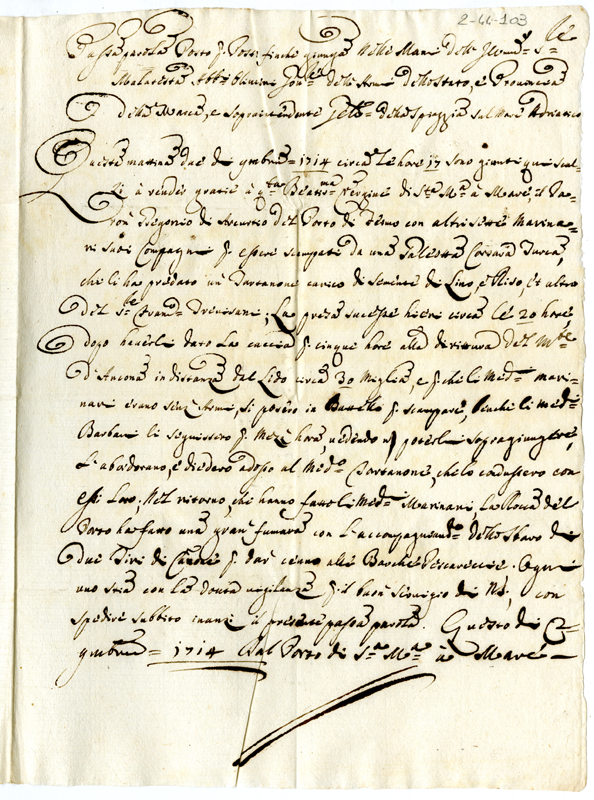 2-44-103
Passa parola Porto p. Porto finche giunga nelle Mani dell' Ill.mo Sr.
Malatesta Abbti Olivieri delle Armi dello Stato, e Provincia
della Marca, e Sopraintendente Gnle della Spiaggia sul Mare Adriatico
Questa mattina due di Xmbre = 1714 circa le hore 17 sono giunti qui scal-
zi à render gratie à qta Beatisma Vergine di Sta Ma à Mare, il Pa-
ron Gregorio di Accursio del Porto di Fermo con altri sette Marina-
ri suoi Compagni p. essere scampati da una Galeotta Corsara Turca,
che li ha predato un Tartanone carico di semente di Lino, e Riso, et altro
del Sr Trevisani; La presa successe hieri circa le 20 hore
dopo haverli dato la caccia p. cinque hore alla dirittura del Mte
d'Ancona in distanza dal Lido circa 30 Miglia, e p. che li Medmi mari-
nari erano senz'Armi, si posero in Battello p. scampare, benche li medmi
Barbari li seguissero p. mezz'hora, vedendo n poterli sopragiungere,
L'abordorano, e diedero adosso al Medmo Tartanone, che lo condussero con
essi Loro; Nel ritorno, che hanno fatto li Medmi Marinari, la Rocca del
Porto ha fatto una gran fumara con L'accompagnamto dello Sbaro di
due Tiri di Canone p. dar cenno alle Barche Pescareccie. Ogni
uno stia con la dovuta vigilanza p. il buon servigio di N.S., con
spedire subbito inanzi il presente passa parola. Questo dì 2
Xmbre = 1714 Dal Porto di Sta Ma à Mare =